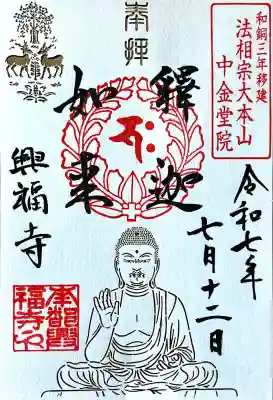 奉拝
和銅三年移建
法相宗大本山
中金堂院
釋迦
如来
令和七年
七月十二日
興福寺